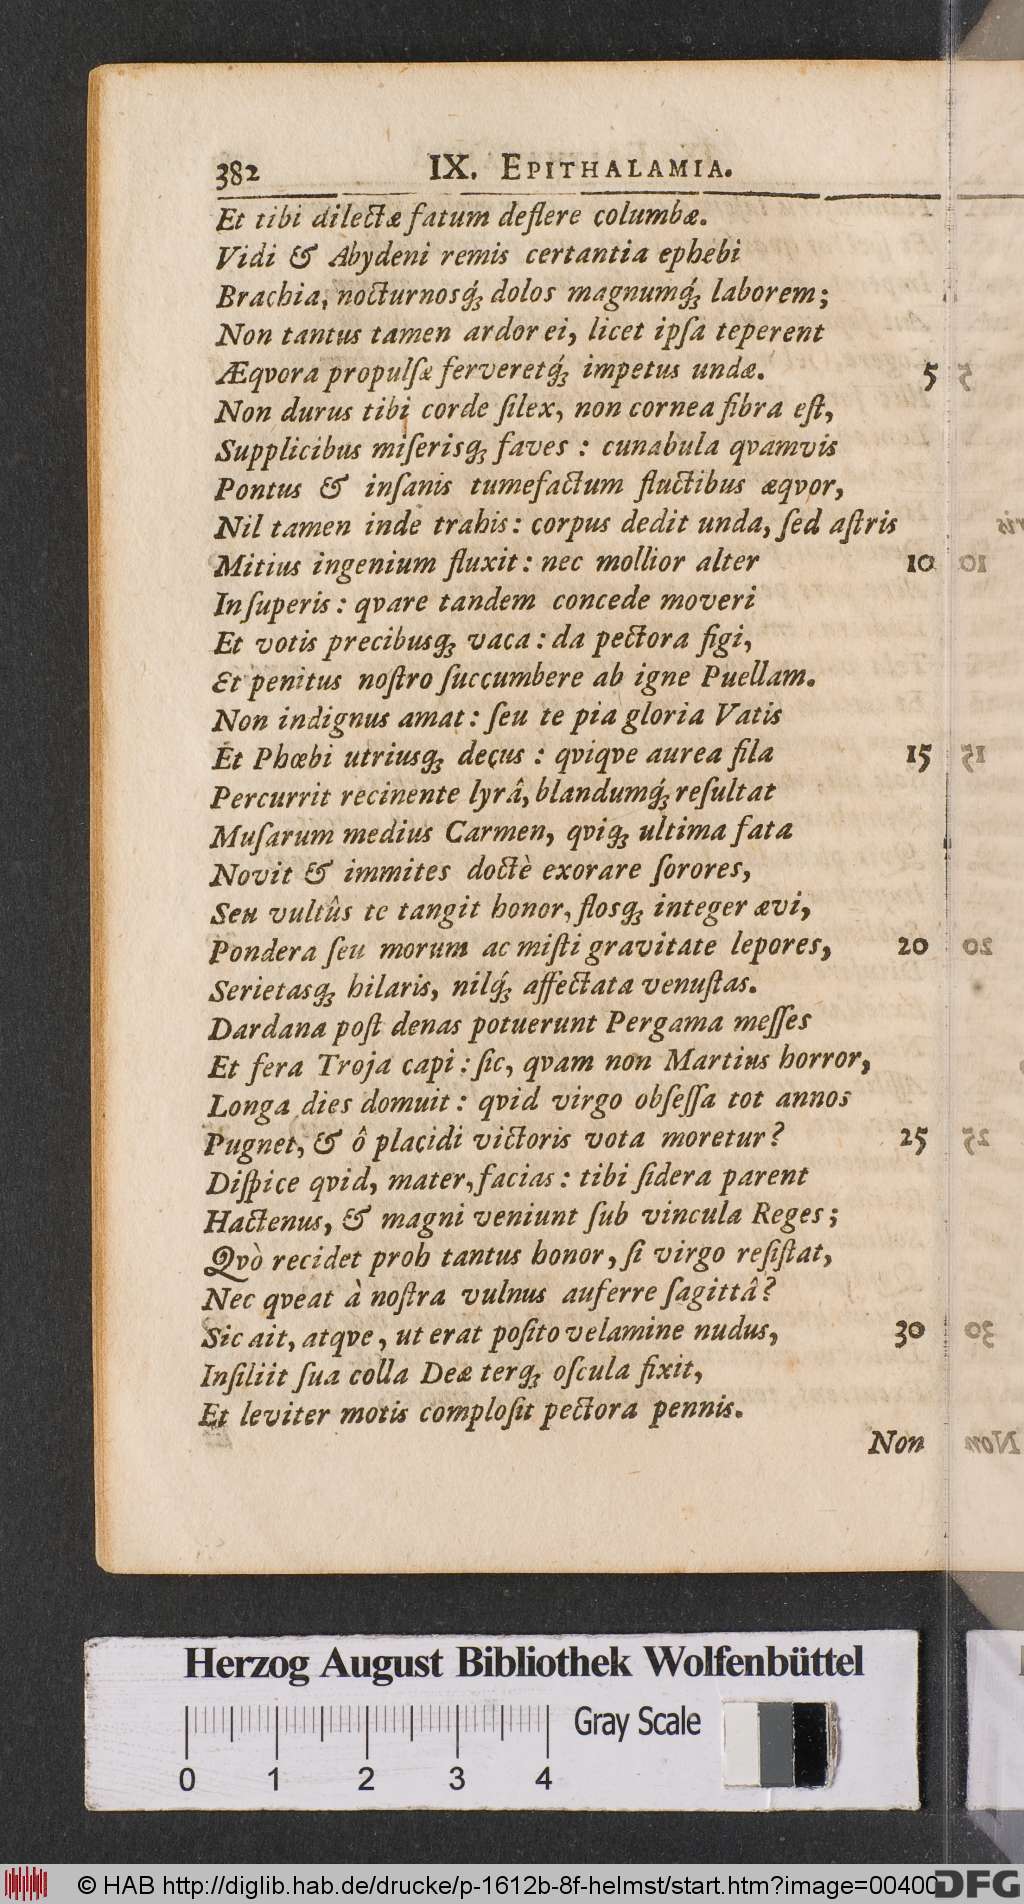 382 IX. EPITHALAMIA.
Et tibi dilectæ fatum deflere columbæ.
Vidi & Abydeni remis certantia ephebi
Brachia, nocturnosq́ꝫ dolos magnumq́ꝫ laborem;
Non tantus tamen ardor ei, licet ipſa teperent
Æqvora propulſæ ferveretq́ꝫ impetus undæ. 5
Non durus tibi corde ſilex, non cornea fibra eſt,
Supplicibus miſerisqꝫ faves : cunabula qvamvis
Pontus & inſanis tumefactum fluctibus æqvor,
Nil tamen inde trahis : corpus dedit unda, ſed aſtris
Mitius ingenium fluxit : nec mollior alter 10
In ſuperis : qvare tandem concede moveri
Et votis precibusqꝫ vaca : da pectora figi,
Et penitus noſtro ſuccumbere ab igne Puellam.
Non indignus amat : ſeu te pia gloria Vatis
Et Phœbi utriusqꝫ decus : qviqve aurea fila 15
Percurrit recinente lyrâ, blandumq́ꝫ reſultat
Muſarum medius Carmen, qviqꝫ ultima fata
Novit & immites doctè exorare ſorores,
Seu vultûs te tangit honor, flosqꝫ integer ævi,
Pondera ſeu morum ac miſti gravitate lepores, 20
Serietasqꝫ hilaris, nilq́ꝫ affectata venuſtas.
Dardana poſt denas potuerunt Pergama meſſes
Et fera Troja capi : ſic, qvam non Martius horror,
Longa dies domuit : qvid virgo obſeſſa tot annos
Pugnet, & ô placidi victoris vota moretur? 25
Diſpice qvid, mater, facias : tibi ſidera parent
Hactenus, & magni veniunt ſub vincula Reges;
Qvò recidet proh tantus honor, ſi virgo reſiſtat,
Nec qveat à noſtra vulnus auferre ſagittâ?
Sic ait, atqve, ut erat poſito velamine nudus, 30
Inſiliit ſua colla Deæ terqꝫ oſcula fixit,
Et leviter motis comploſit pectora pennis.
Non
Herzog August Bibliothek Wolfenbüttel
Gray Scale
0 1 2 3 4
© HAB http://diglib.hab.de/drucke/p-1612b-8f-helmst/start.htm?image=00400
DFG